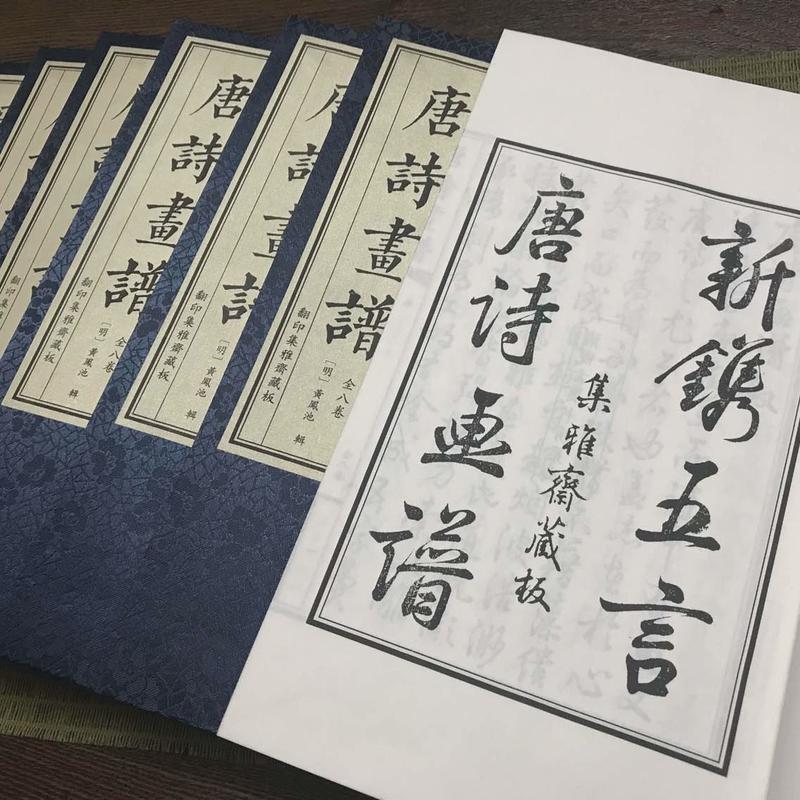 新鐫五言
集雅齋藏板
唐詩画譜
唐詩畫譜
全八卷
[明] 黃鳳池 輯
翻印集雅齋藏板
唐詩畫
[明] 黃鳳池 輯
翻印集雅齋藏板
唐詩畫譜
全八卷
[明] 黃鳳池 輯
翻印集雅齋藏板
翻印集雅齋藏板